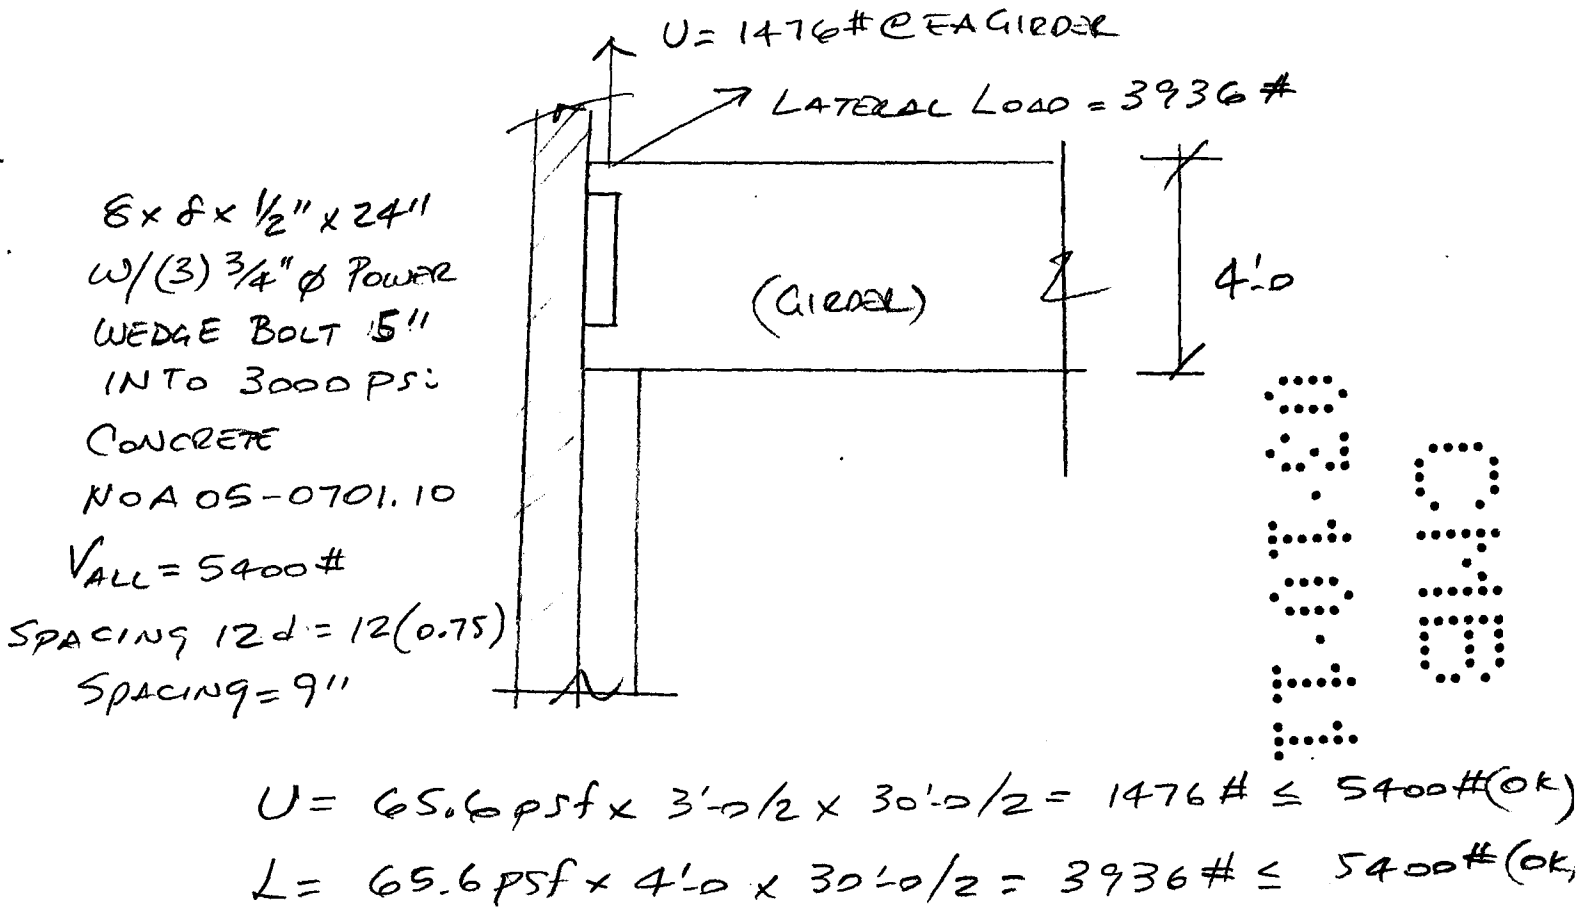 U = 1476# @ EA GIRDER
LATERAL LOAD = 3936#
8 x 8 x 1/2" x 24"
W/(3) 3/4" ø POWER
WEDGE BOLT 5"
INTO 3000 psi
CONCRETE
NOA 05-0701.10
VALL = 5400#
SPACING 12d = 12(0.75)
SPACING = 9"
(GIRDER)
4'-0
CMB
U = 65.6 psf x 3'-0/2 x 30'-0/2 = 1476# ≤ 5400# (OK)
L = 65.6 psf x 4'-0 x 30'-0/2 = 3936# ≤ 5400# (OK)